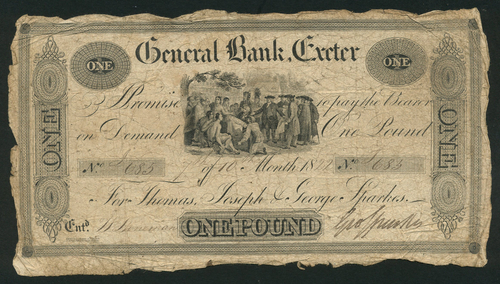 General Bank, Exeter
ONE ONE
I Promise to pay the Bearer
on Demand One Pound
No 685 of 10 Month 18 No 685
For Thomas, Joseph & George Sparkes.
Entd ONE POUND Geo Sparkes
ONE
ONE